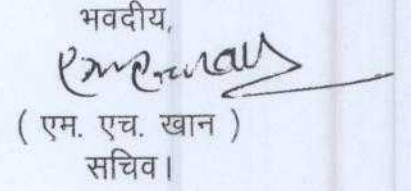 भवदीय,
( एम. एच. खान )
सचिव।